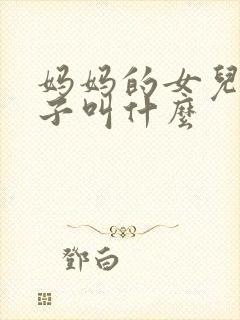 妈妈的女兒
子叫什麼
鄧白